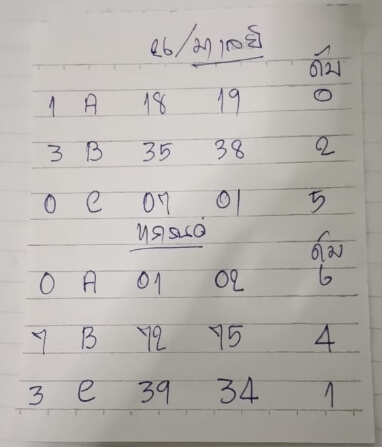 26/มาเลย์
ดับ
1 A 18 19 0
3 B 35 38 2
0 C 07 01 5
ดับ
0 A 01 02 6
7 B 72 75 4
3 C 39 34 1